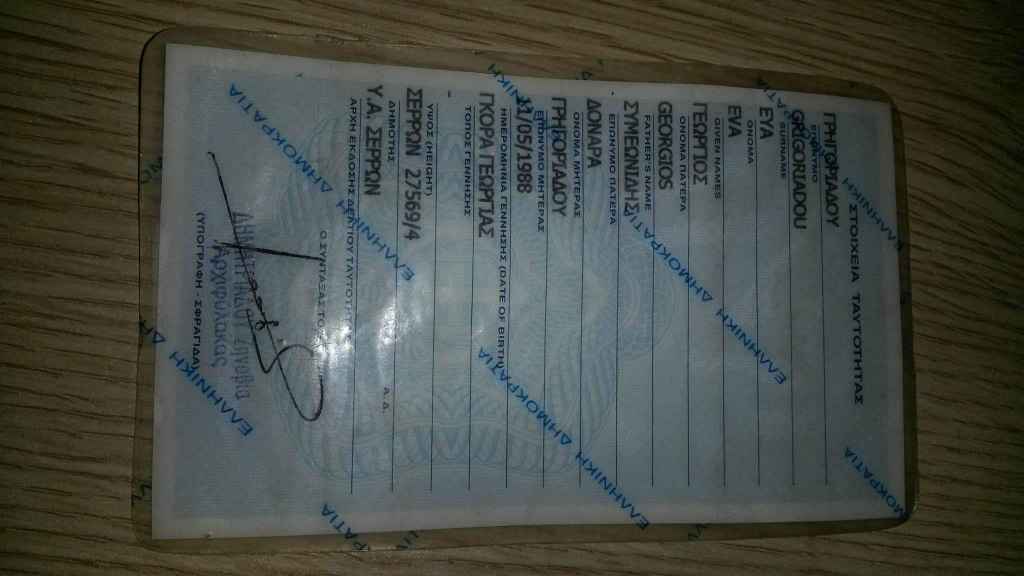 ΣΤΟΙΧΕΙΑ ΤΑΥΤΟΤΗΤΑΣ
ΓΡΗΓΟΡΙΑΔΟΥ
ΕΠΩΝΥΜΟ
GRIGORIADOU
SURNAME
ΕΥΑ
ΟΝΟΜΑ
EVA
GIVEN NAMES
ΓΕΩΡΓΙΟΣ
ΟΝΟΜΑ ΠΑΤΕΡΑ
GEORGIOS
FATHER'S NAME
ΣΥΜΕΩΝΙΔΗΣ
ΕΠΩΝΥΜΟ ΠΑΤΕΡΑ
ΔΟΝΑΡΑ
ΟΝΟΜΑ ΜΗΤΕΡΑΣ
ΓΡΗΓΟΡΙΑΔΟΥ
ΕΠΩΝΥΜΟ ΜΗΤΕΡΑΣ
11/05/1988
ΗΜΕΡΟΜΗΝΙΑ ΓΕΝΝΗΣΗΣ (DATE OF BIRTH)
ΓΚΟΡΑ ΓΕΩΡΓΙΑΣ
ΤΟΠΟΣ ΓΕΝΝΗΣΗΣ
-
ΥΨΟΣ (HEIGHT)
ΣΕΡΡΩΝ 27569/4
ΔΗΜΟΤΗΣ
Α.Δ.
Υ.Α. ΣΕΡΡΩΝ
ΑΡΧΗ ΕΚΔΟΣΗΣ ΔΕΛΤΙΟΥ ΤΑΥΤΟΤΗΤΑΣ
Ο ΣΥΝΤΑΞΑΣ ΤΟ
Αρχιφύλακας
(ΥΠΟΓΡΑΦΗ - ΣΦΡΑΓΙΔΑ)
ΕΛΛΗΝΙΚΗ ΔΗΜΟΚΡΑΤΙΑ